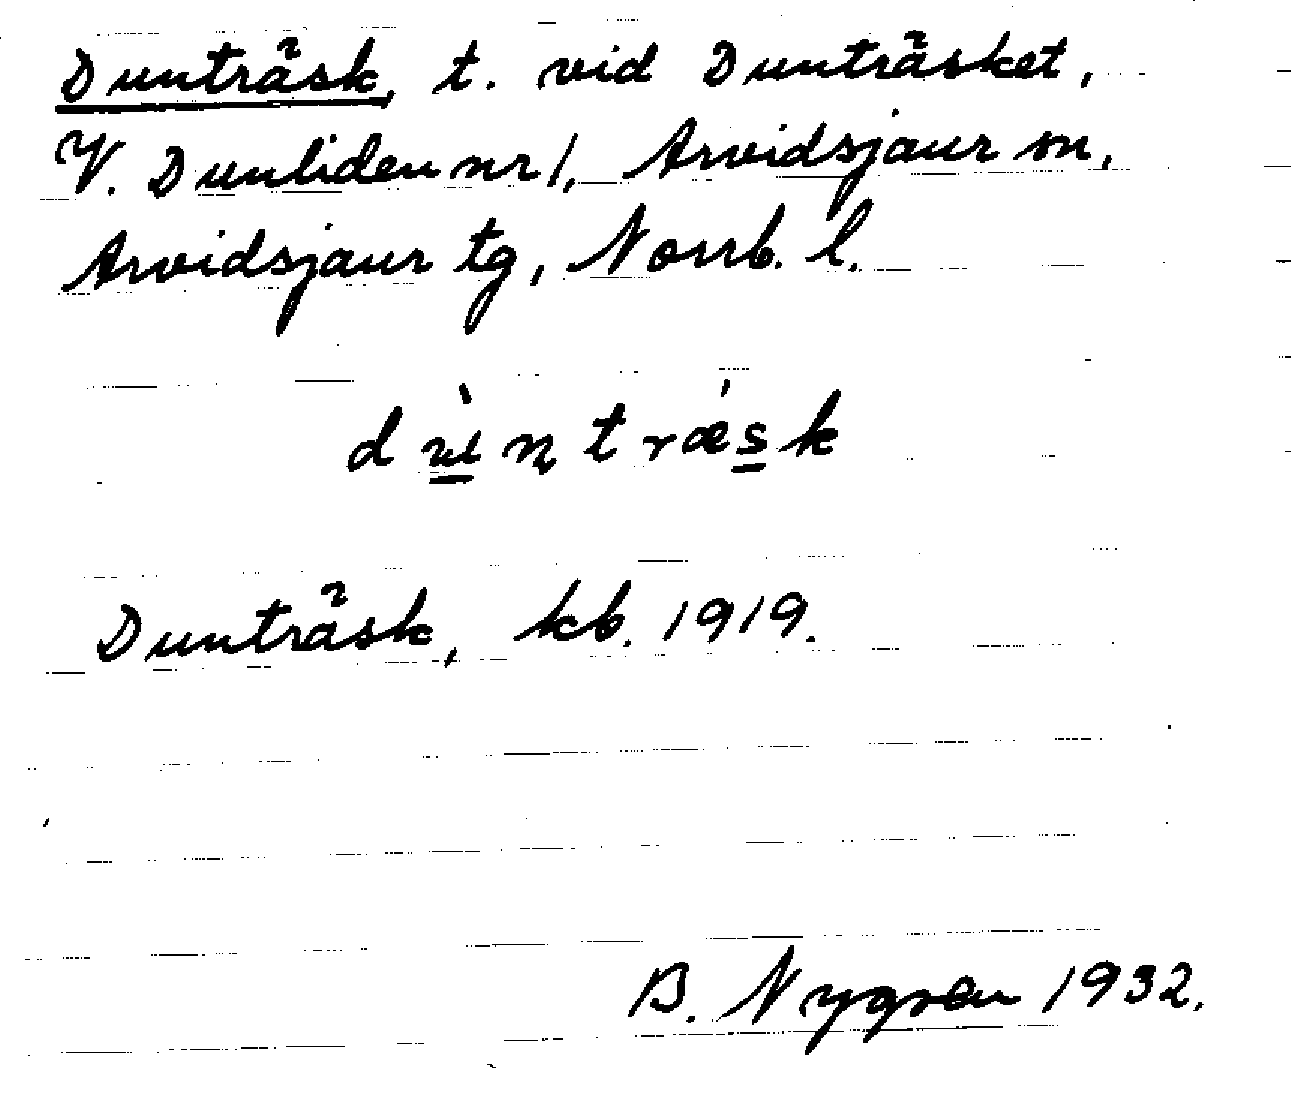 Dunträsk, t. vid Dunträsket,
V. Dunliden nr 1, Arvidsjaur sn,
Arvidsjaur tg, Norrb. l.
dùntrǽsk
Dunträsk, kb. 1919.
B. Nygren 1932.